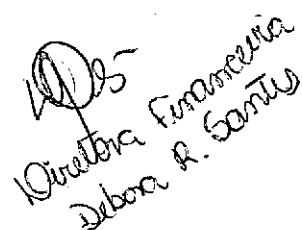 Diretora Financeira
Debora R. Santos